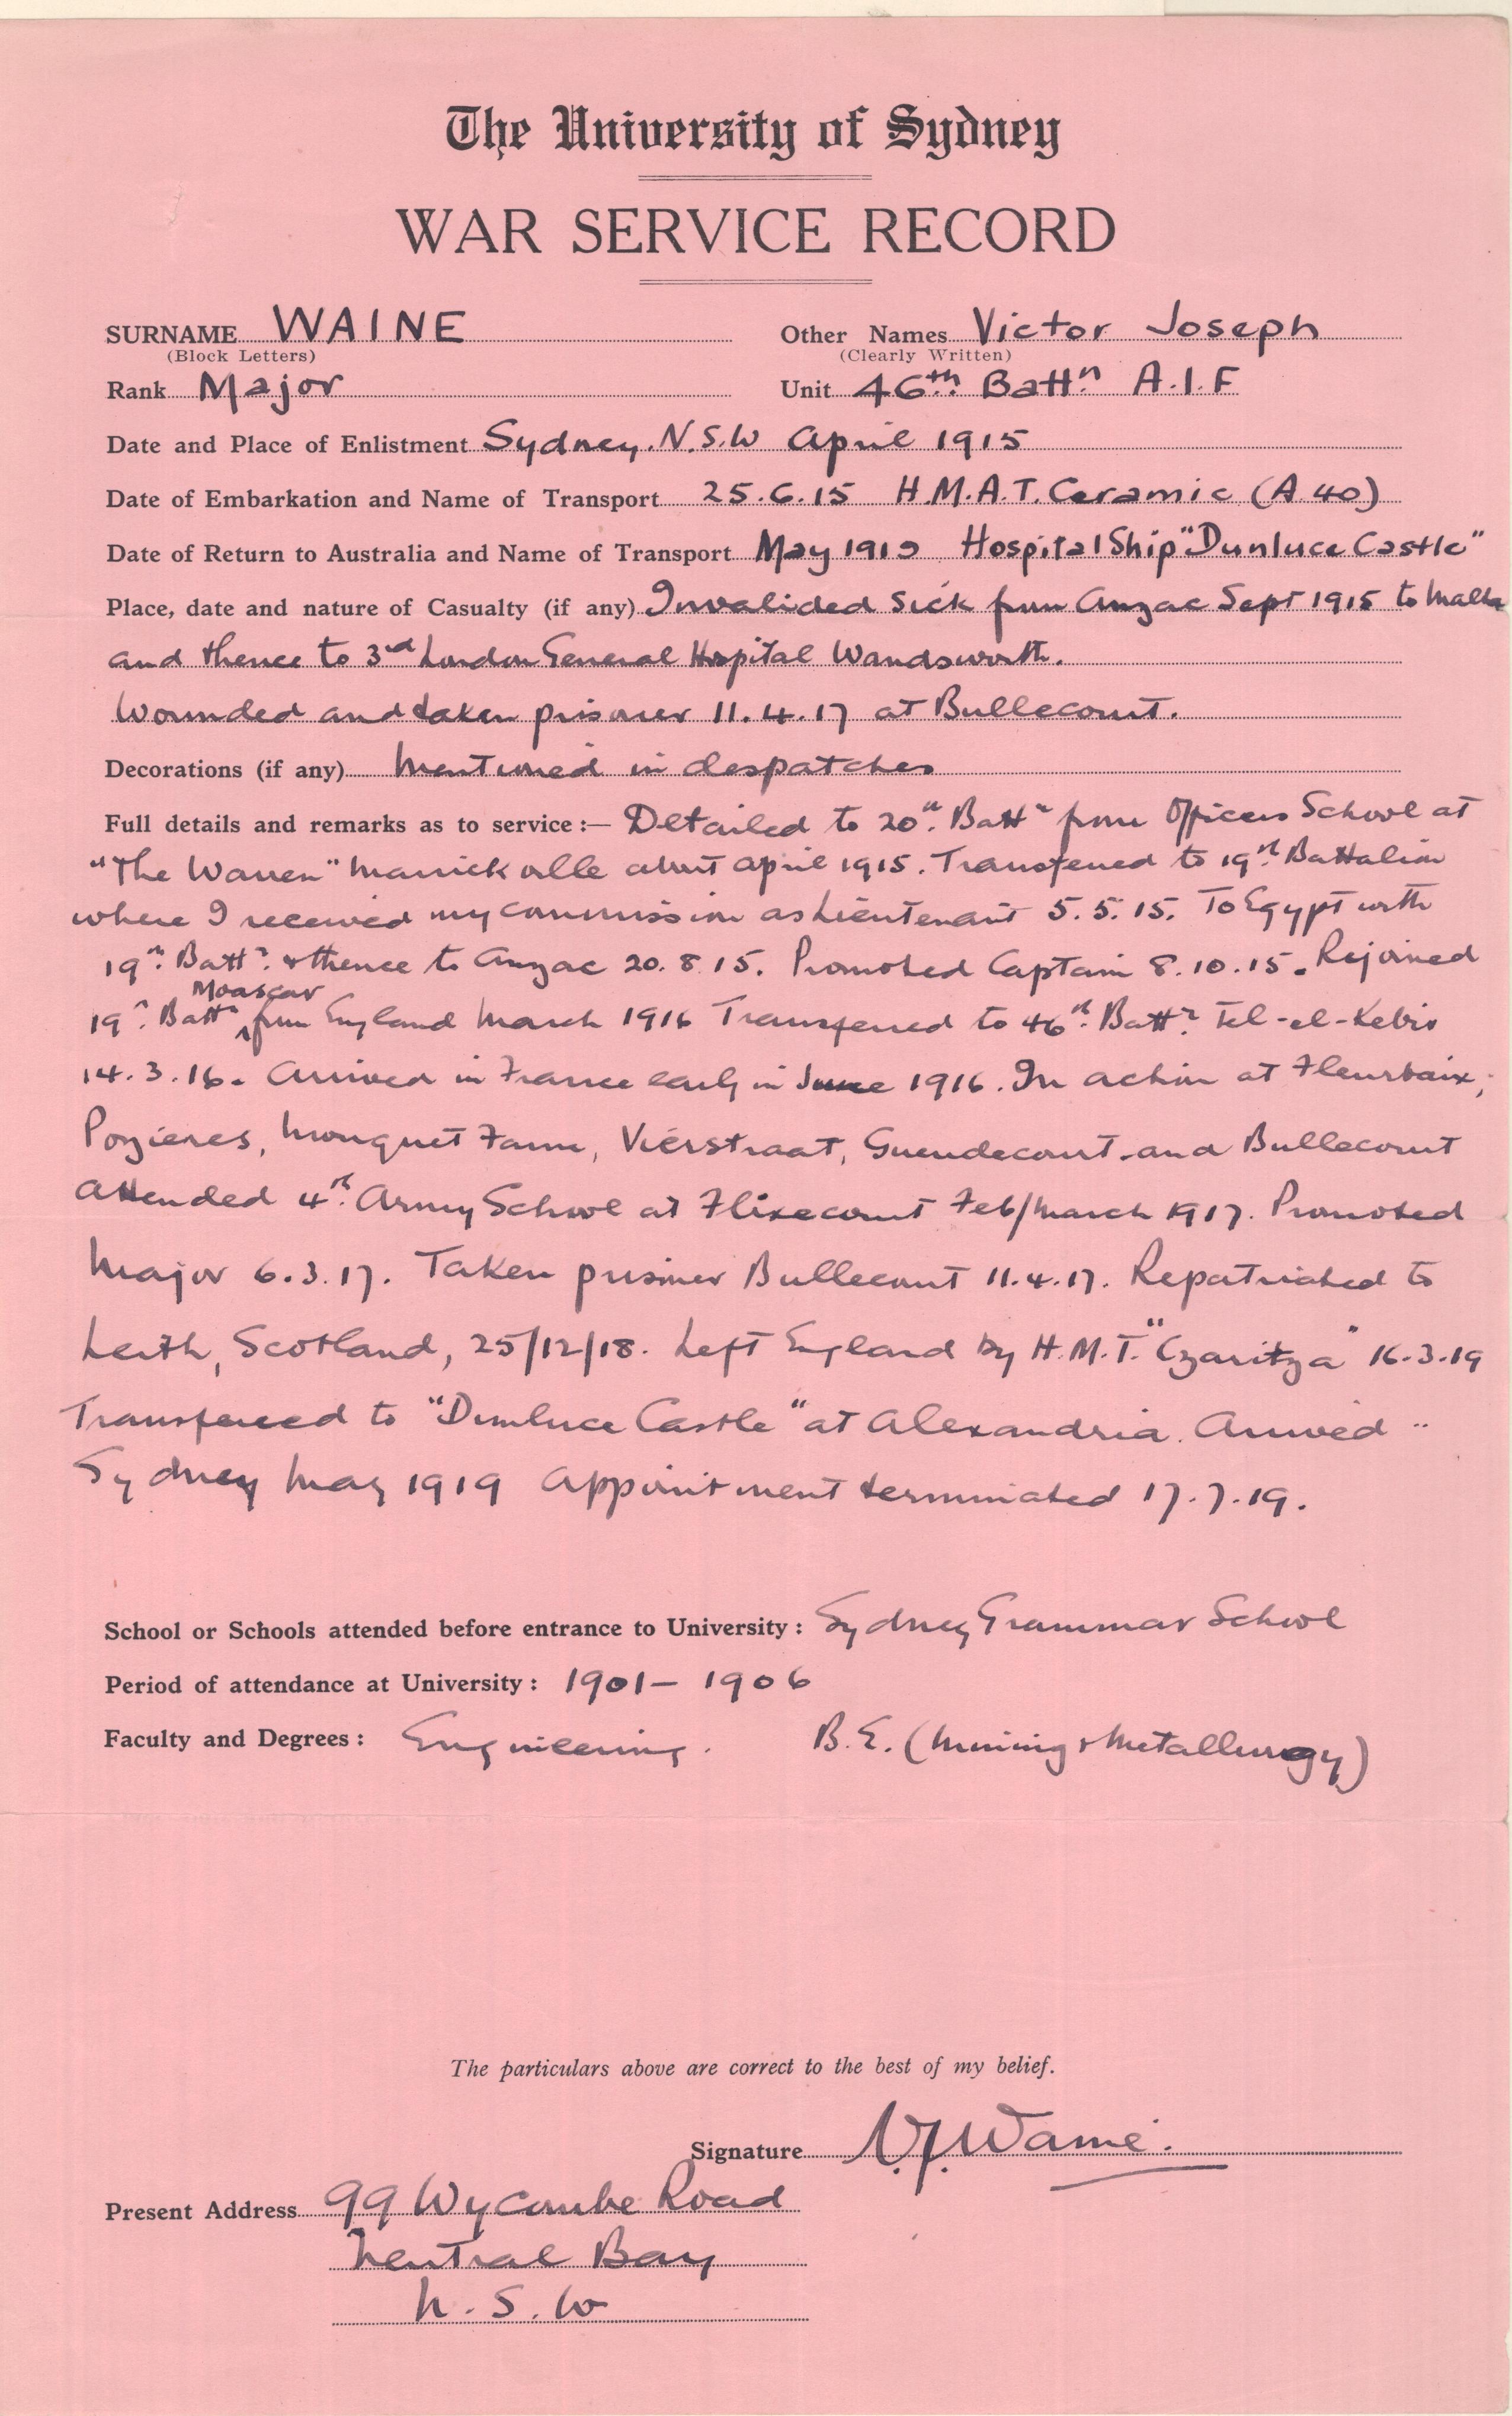 The University of Sydney
WAR SERVICE RECORD
SURNAME WAINE Other Names Victor Joseph
(Block Letters) (Clearly Written)
Rank Major Unit 46th Battn A.I.F
Date and Place of Enlistment Sydney. N.S.W April 1915
Date of Embarkation and Name of Transport 25.6.15 H.M.A.T. Ceramic (A 40)
Date of Return to Australia and Name of Transport May 1919 Hospital Ship "Dunluce Castle"
Place, date and nature of Casualty (if any) Invalided sick from Anzac Sept 1915 to Malta
and thence to 3rd London General Hospital Wandsworth.
Wounded and taken prisoner 11.4.17 at Bullecourt.
Decorations (if any) Mentioned in despatches
Full details and remarks as to service:— Detailed to 20th Battn from Officers School at
"The Warren" Marrickville about April 1915. Transferred to 19th Battalion
where I received my commission as Lieutenant 5.5.15. To Egypt with
19th Battn & thence to Anzac 20.8.15. Promoted Captain 8.10.15. Rejoined
Moascar
19th Battn from England March 1916 Transferred to 46th Battn Tel-el-Kebir
14.3.16. Arrived in France early in June 1916. In action at Fleurbaix,
Pozieres, Mouquet Farm, Vierstraat, Gueudecourt and Bullecourt
Attended 4th Army School at Flixecourt Feb/March 1917. Promoted
Major 6.3.17. Taken prisoner Bullecourt 11.4.17. Repatriated to
Leith, Scotland, 25/12/18. Left England by H.M.T. "Czaritza" 16.3.19
Transferred to "Dunluce Castle" at Alexandria. Arrived
Sydney May 1919 Appointment terminated 17.7.19.
School or Schools attended before entrance to University: Sydney Grammar School
Period of attendance at University: 1901 - 1906
Faculty and Degrees: Engineering. B.E. (Mining & Metallurgy)
The particulars above are correct to the best of my belief.
Signature V.J. Waine.
Present Address 99 Wycombe Road
Neutral Bay
N.S.W